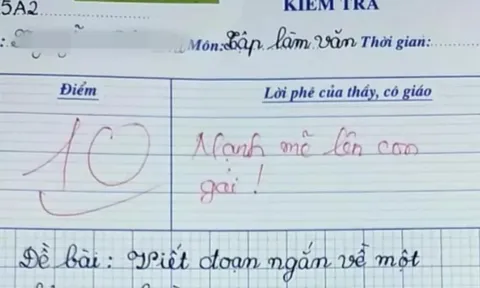 KIỂM TRA
5A2
Môn: Tập làm văn Thời gian:
Điểm
Lời phê của thầy, cô giáo
10
Mạnh mẽ lên con
gái!
Đề bài: Viết đoạn ngắn về một